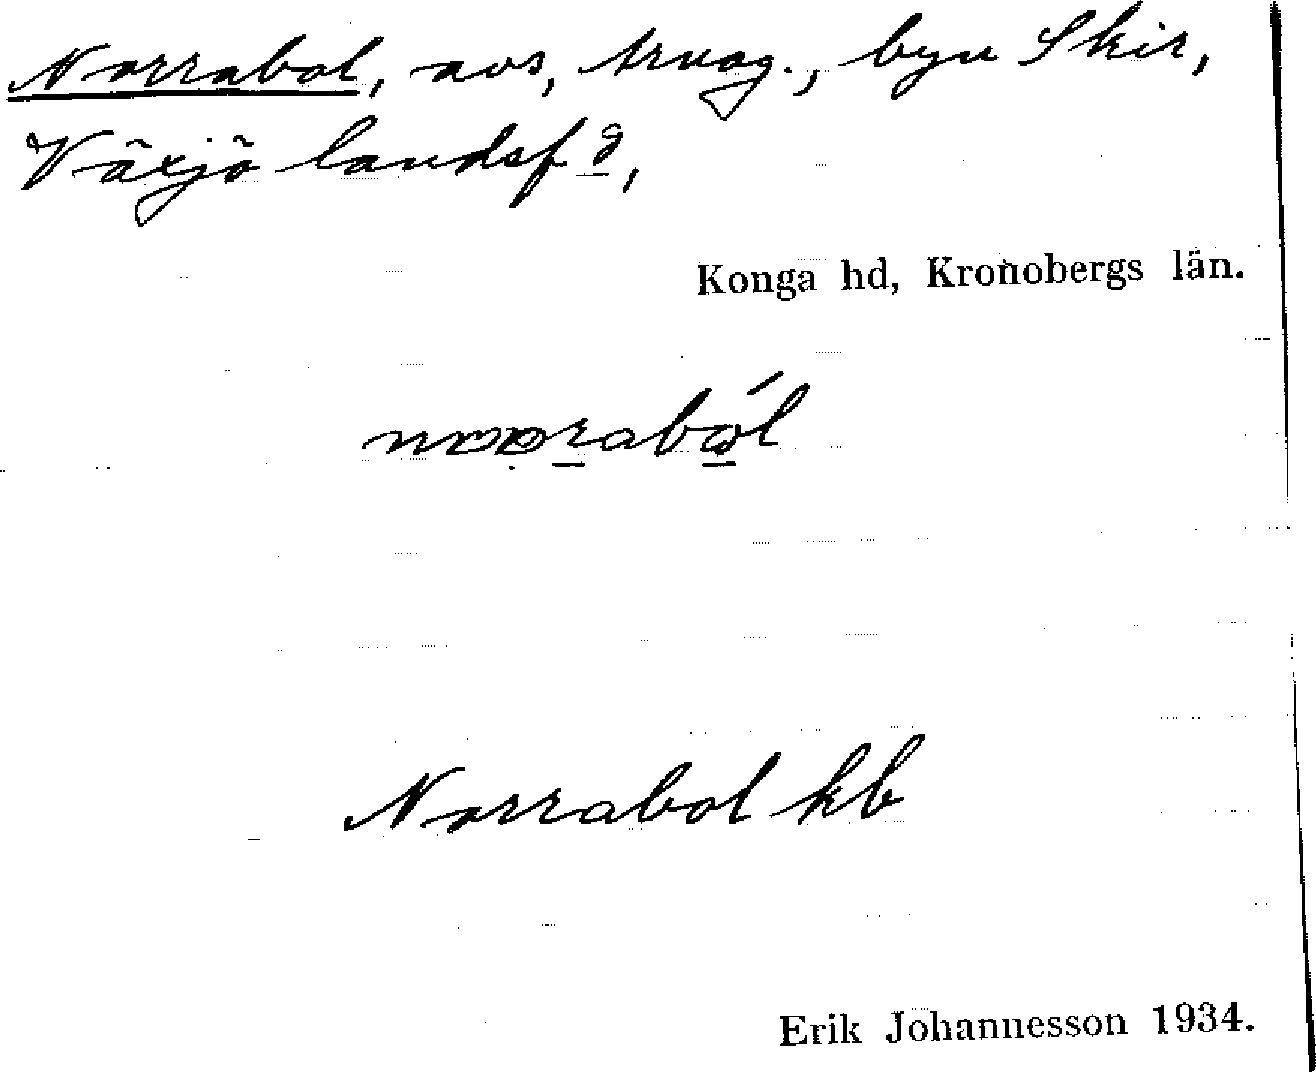 Norrabol, avs, trvag., byn Skir,
Växjö landsf d,
Konga hd, Kronobergs län.
Norrabol kb
Erik Johannesson 1934.